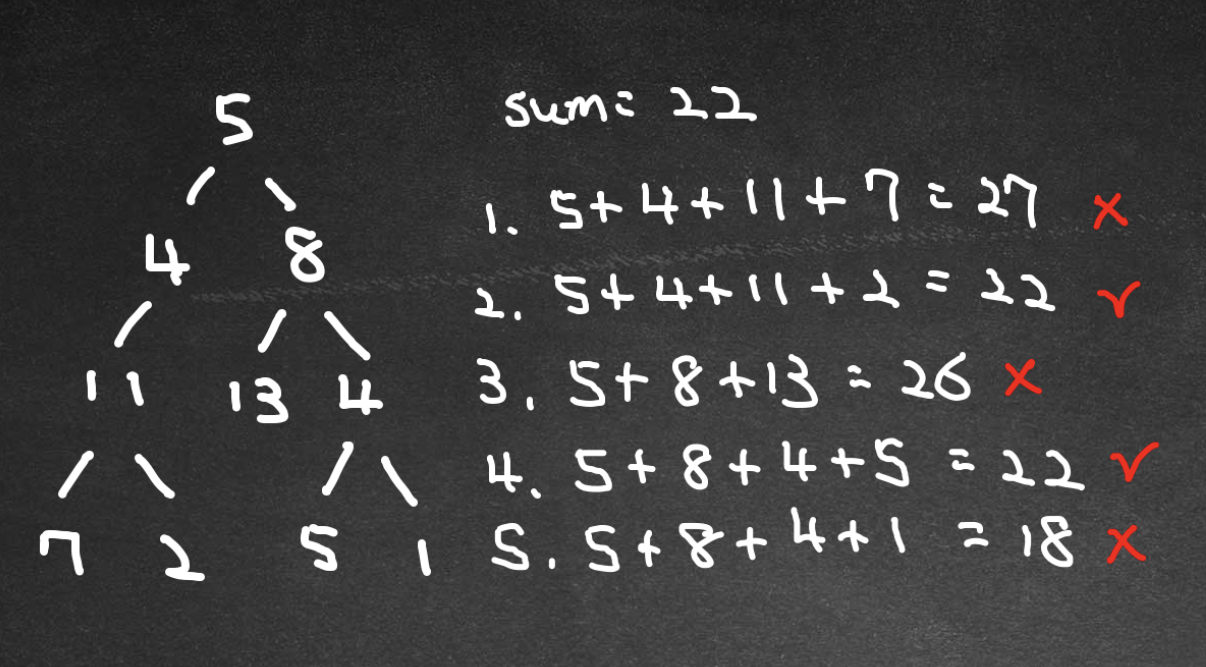 5
4 8
11 13 4
7 2 5 1
sum= 22
1. 5+4+11+7=27 ×
2. 5+4+11+2=22 ✓
3. 5+8+13=26 ×
4. 5+8+4+5=22 ✓
5. 5+8+4+1=18 ×